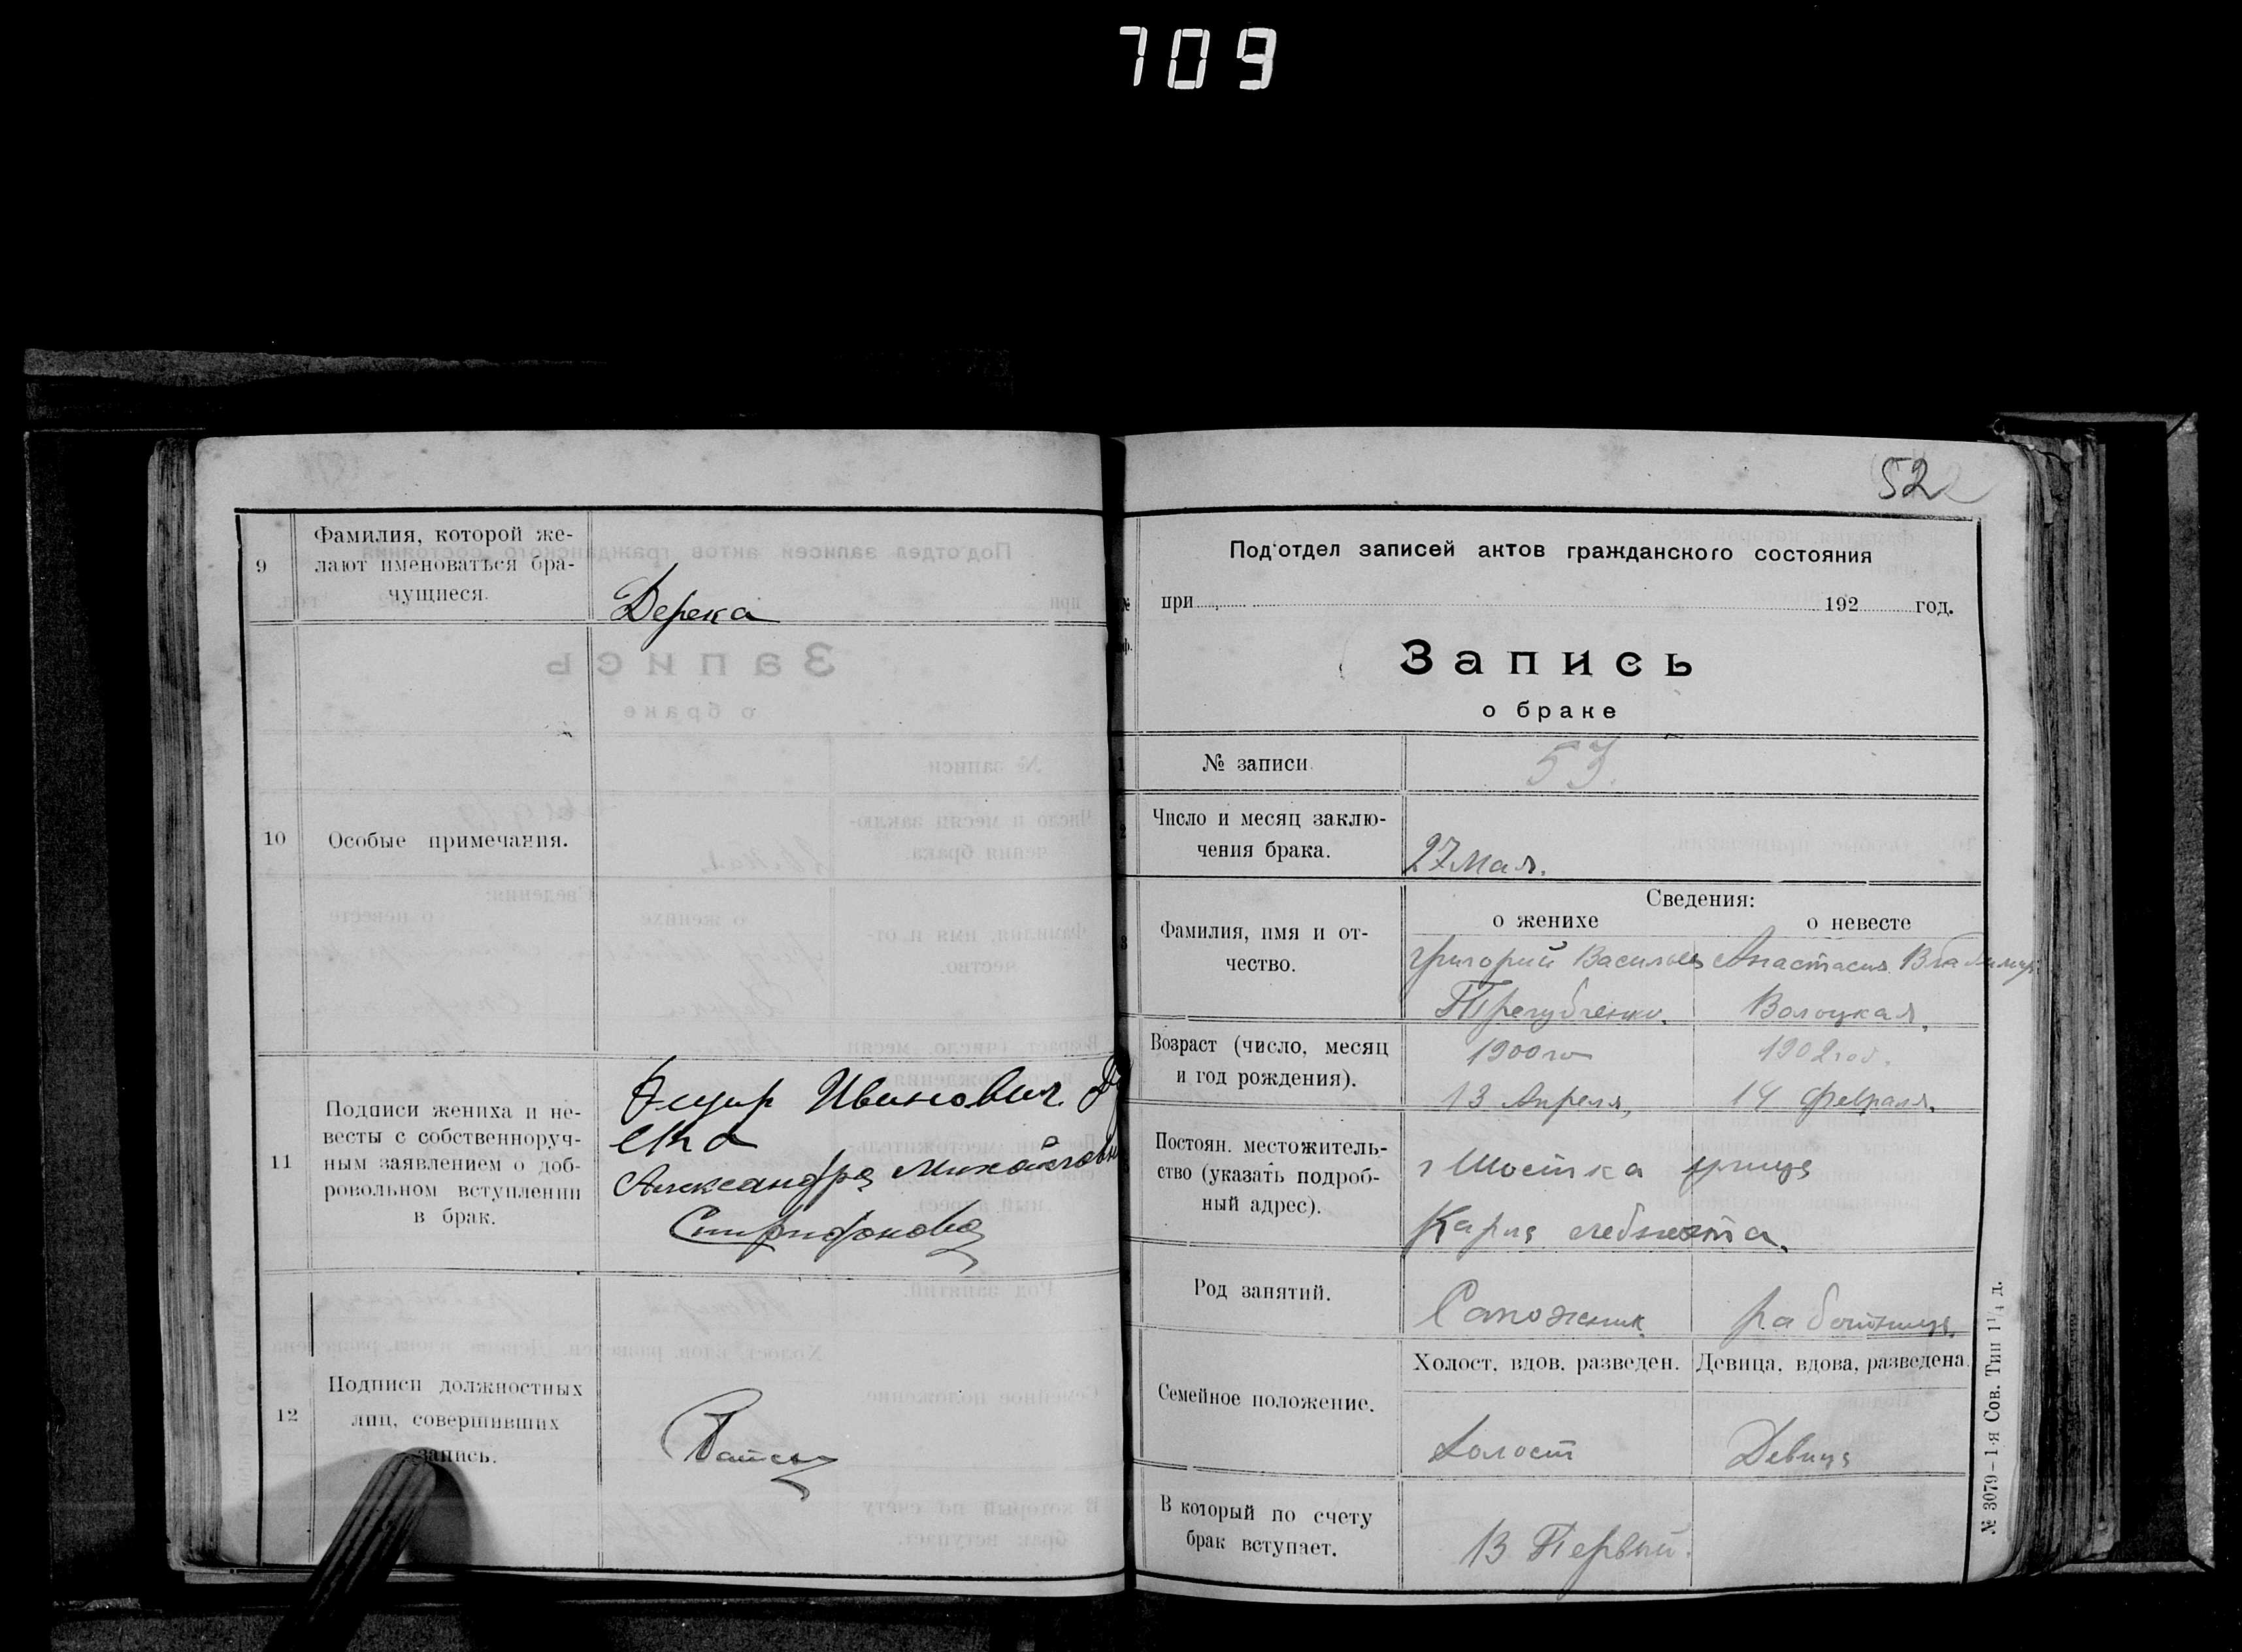 709
9
Фамилия, которой же-
лают именоваться бра-
чущиеся.
Дерека
10
Особые примечания.
11
Подписи жениха и не-
весты с собственноруч-
ным заявлением о доб-
ровольном вступлении
в брак.
Иванович
Александра Михайловн
Спиридонова
12
Подписи должностных
лиц, совершивших
запись.
52
Под'отдел записей актов гражданского состояния
при 192 год.
Запись
о браке
№ записи
53
Число и месяц заклю-
чения брака.
27 Мая.
Сведения:
о женихе о невесте
Фамилия, имя и от-
чество.
Григорий Васильев Анастасия Владимир
Трегубченко. Волоцкая.
Возраст (число, месяц
и год рождения).
1900го 1902 год.
13 Апреля, 14 Февраля.
Постоян. местожитель-
ство (указать подроб-
ный адрес).
г Шостка улица
Карла Лебкнехта.
Род занятий.
Сапожник работница.
Семейное положение.
Холост, вдов, разведен. Девица, вдова, разведена.
Холост Девица
В который по счету
брак вступает.
В Первый.
№ 3079–1-я Сов. Тип 1¼ д.